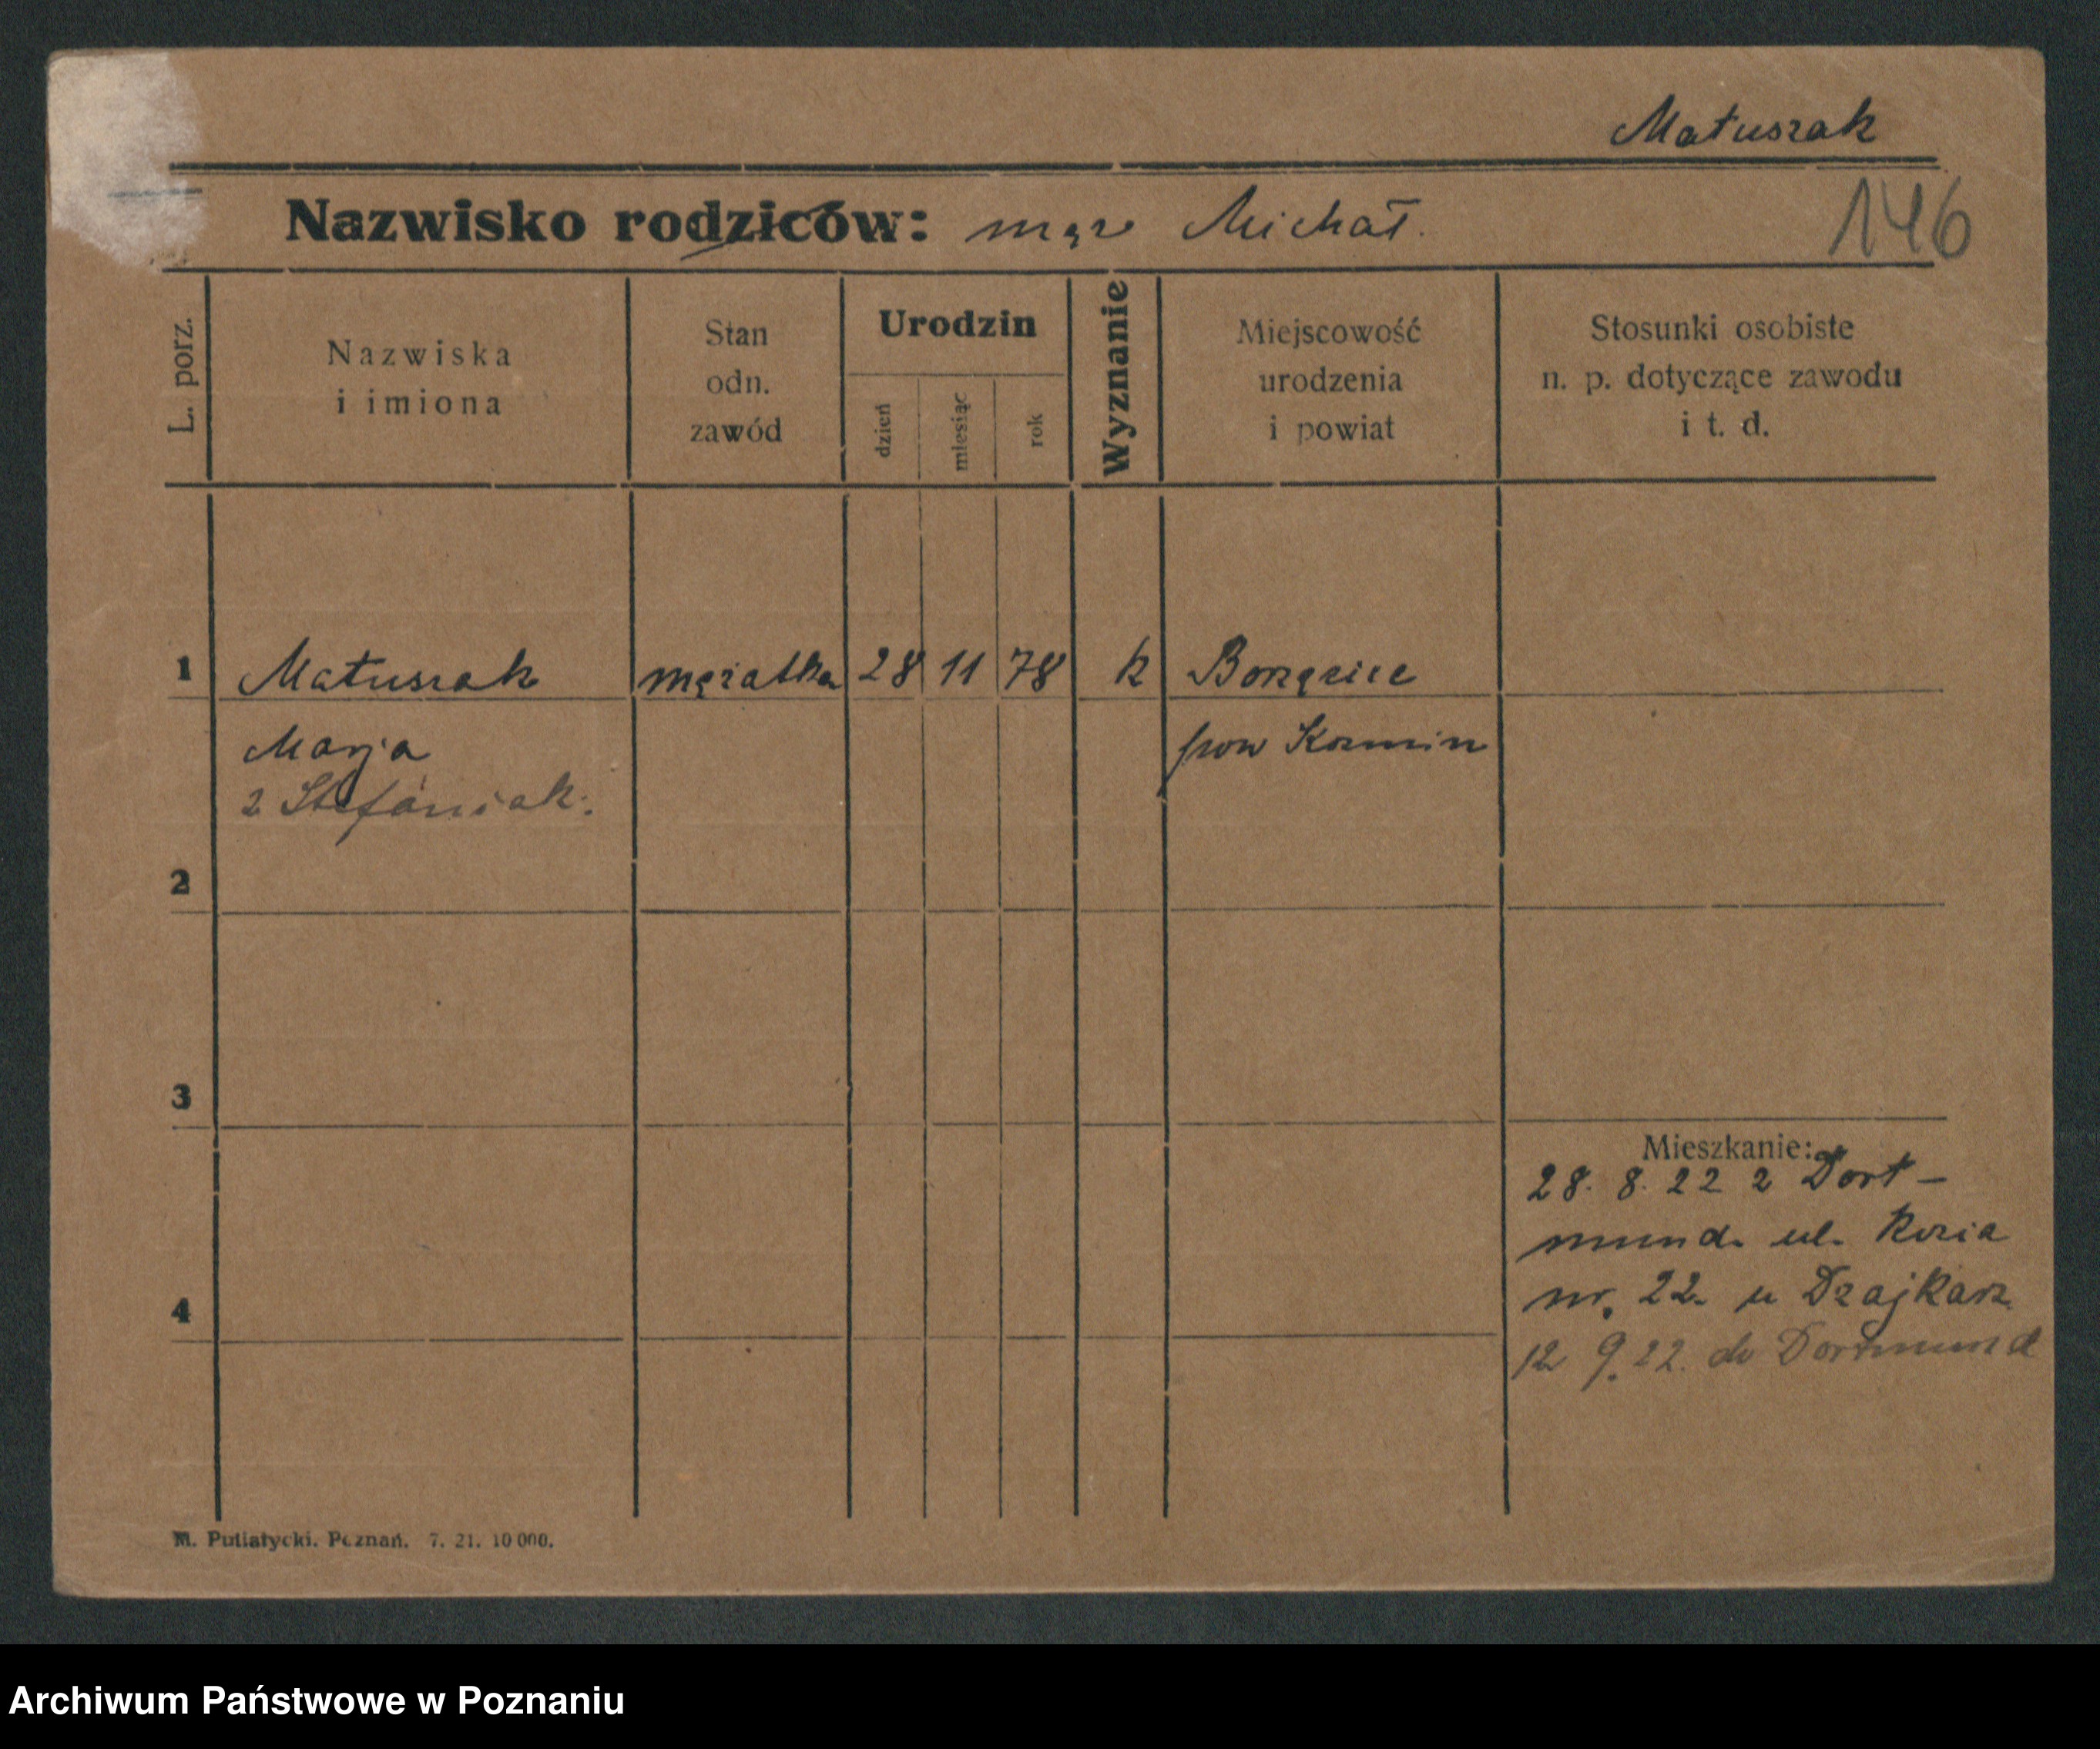 Matuszak
146
Nazwisko rodziców: mąż Michał.
L. porz.
Nazwiska
i imiona
Stan
odn.
zawód
Urodzin
dzień
miesiąc
rok
Wyznanie
Miejscowość
urodzenia
i powiat
Stosunki osobiste
n. p. dotyczące zawodu
i t. d.
1 Matuszak mężatka 28 11 78 k Borzęcice
Marja pow Kozmin
z Stefaniak.
2
3
4
Mieszkanie:
28. 8. 22 z Dort-
mund. ul.
nr. 22. u
12 9.22. do Dortmund
M. Putiatycki. Poznań. 7. 21. 10 000.
Archiwum Państwowe w Poznaniu